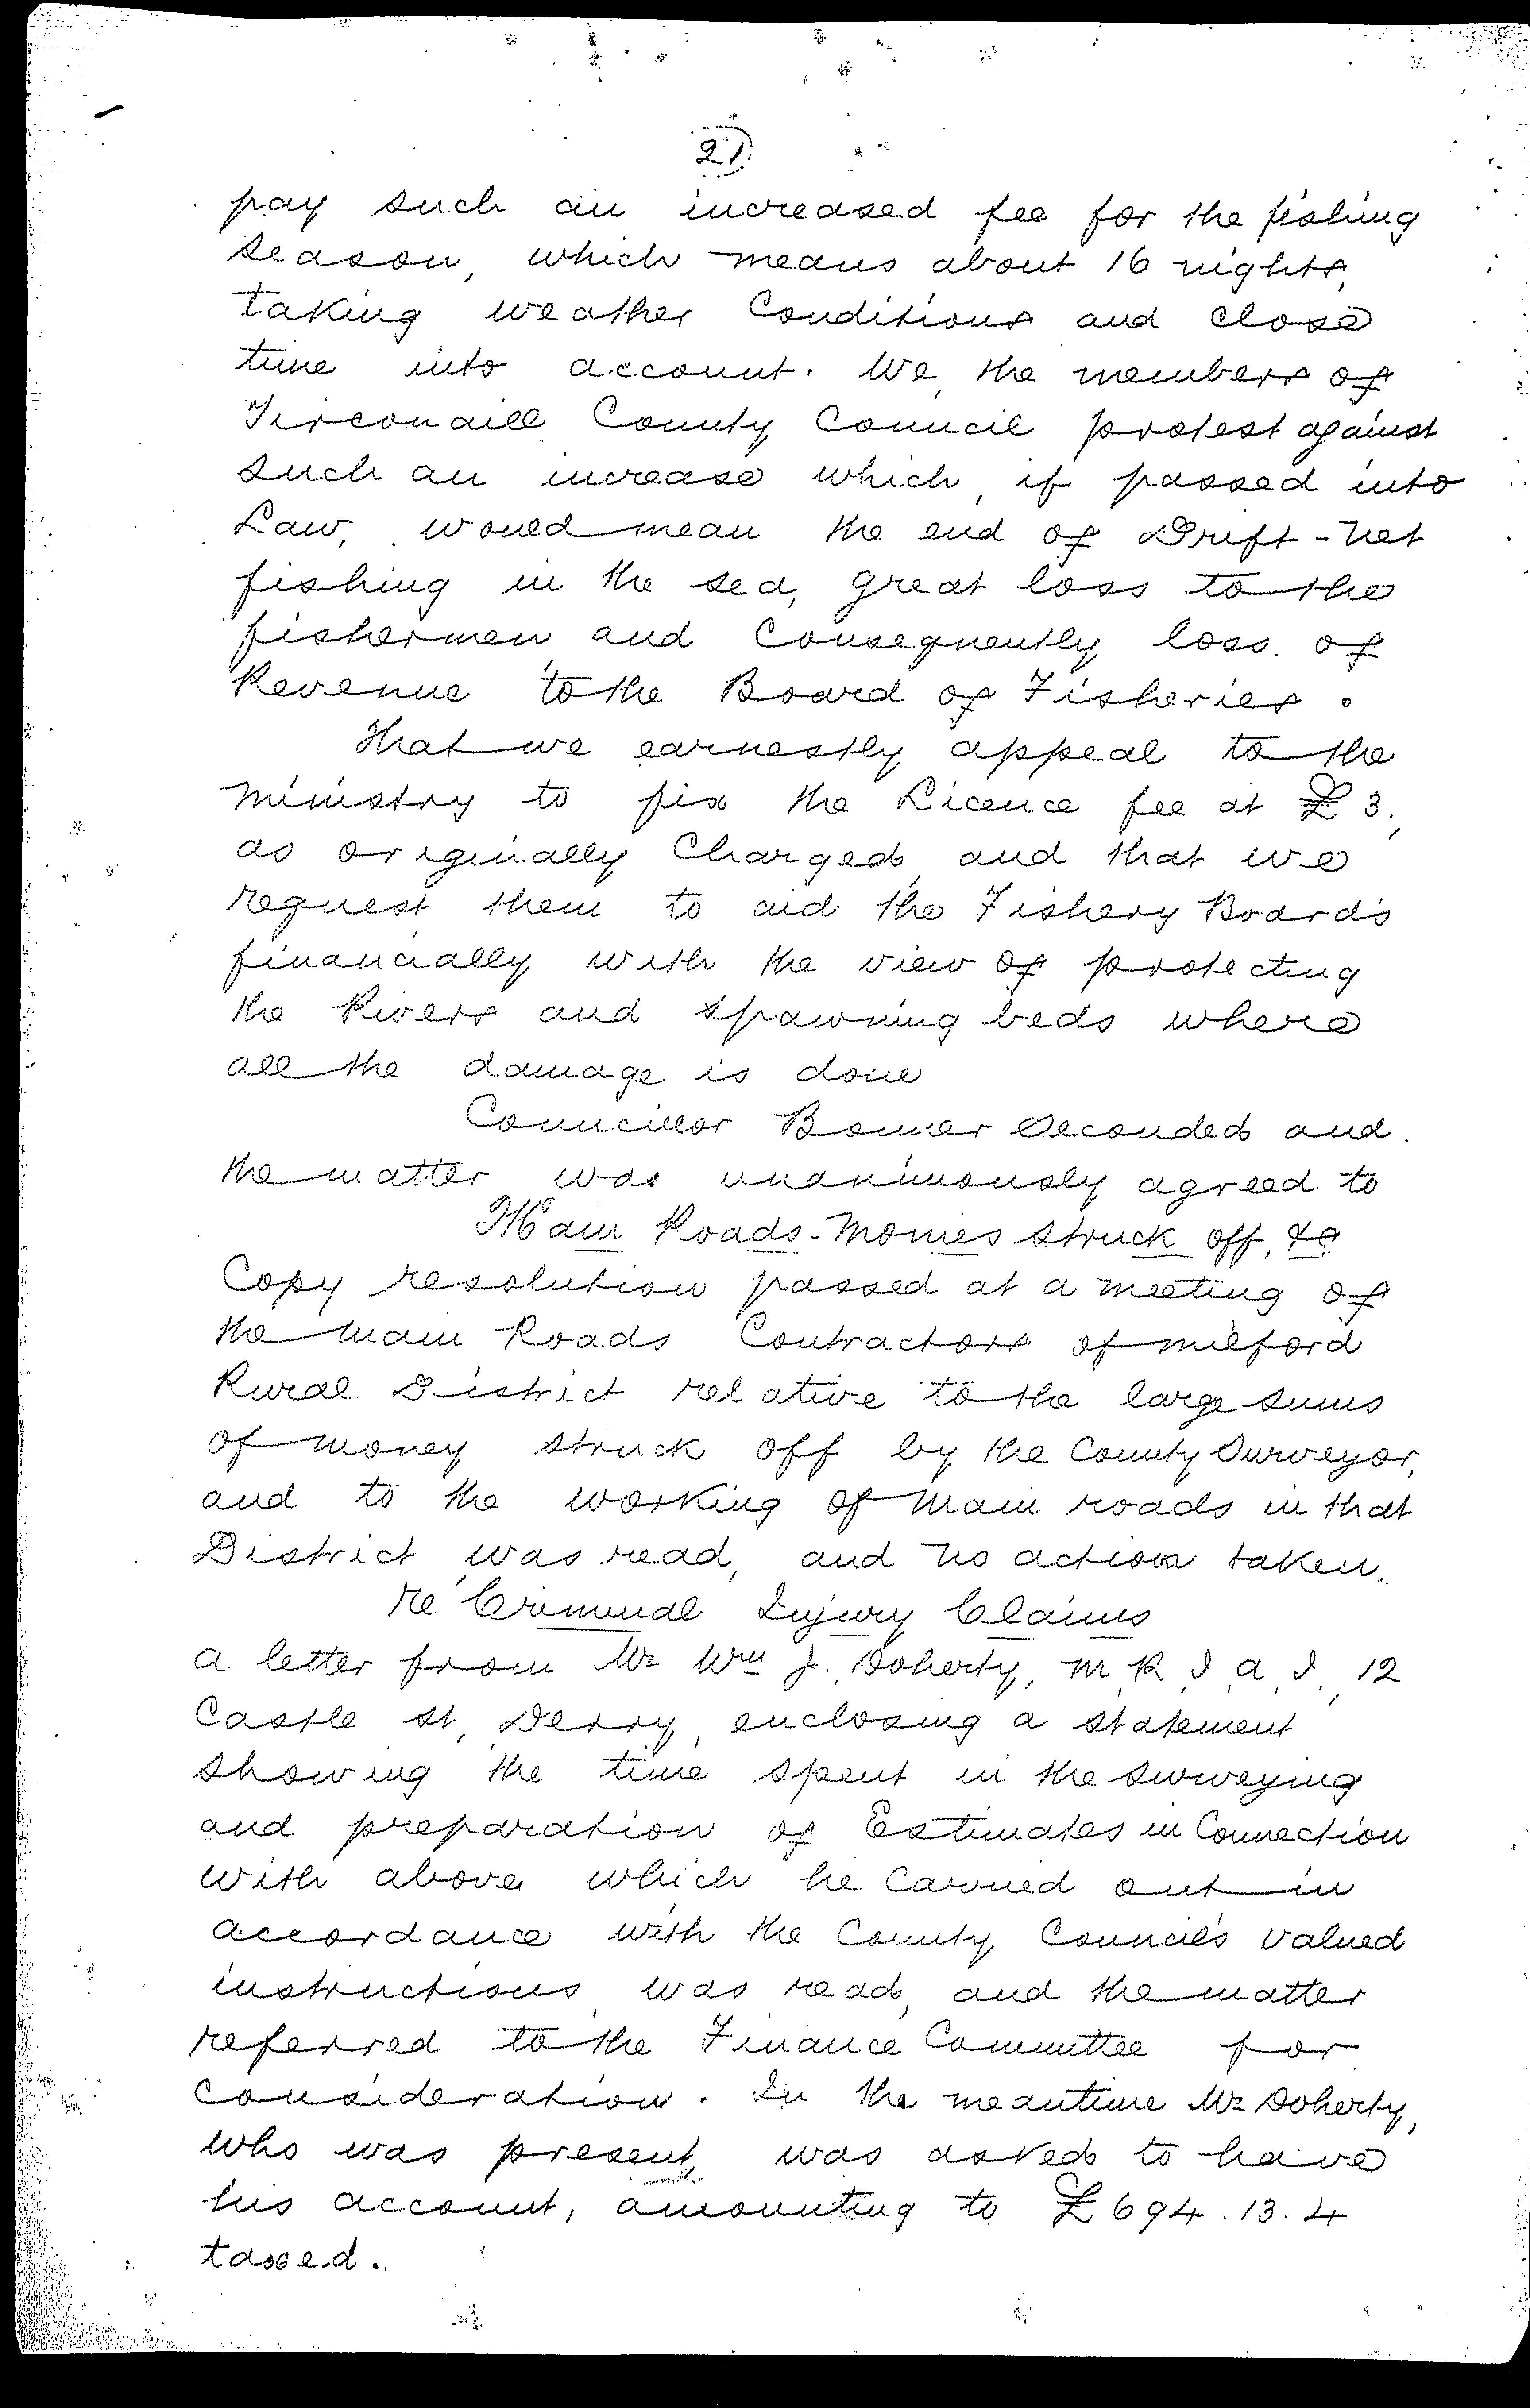 21
pay such an increased fee for the fishing
season, which means about 16 nights,
taking weather Conditions and Close
time into account. We, the members of
Tirconaill County Council protest against
such an increase which, if passed into
Law, would mean the end of Drift-net
fishing in the sea, great loss to the
fishermen and Consequently loss of
Revenue to the Board of Fisheries.
That we earnestly appeal to the
ministry to fix the Licence fee at £3,
as originally Charged, and that we
request them to aid the Fishery Boards
financially with the view of protecting
the Rivers and spawning beds where
all the damage is done
Councillor Bonner seconded and
the matter was unanimously agreed to
Main Roads-Monies struck off, &c
Copy resolution passed at a meeting of
the Main Roads Contractors of Milford
Rural District relative to the large sums
of money struck off by the County Surveyor,
and to the working of Main roads in that
District was read, and no action taken.
Re Criminal Injury Claims
a letter from Mr Wm J. Doherty, M.R.I.A.I, 12
Castle St, Derry, enclosing a statement
showing the time spent in the surveying
and preparation of Estimates in Connection
with above which he Carried out in
accordance with the County Council's valued
instructions, was read, and the matter
referred to the Finance Committee for
consideration. In the meantime Mr Doherty,
who was present, was asked to have
his account, amounting to £694.13.4
taxed.